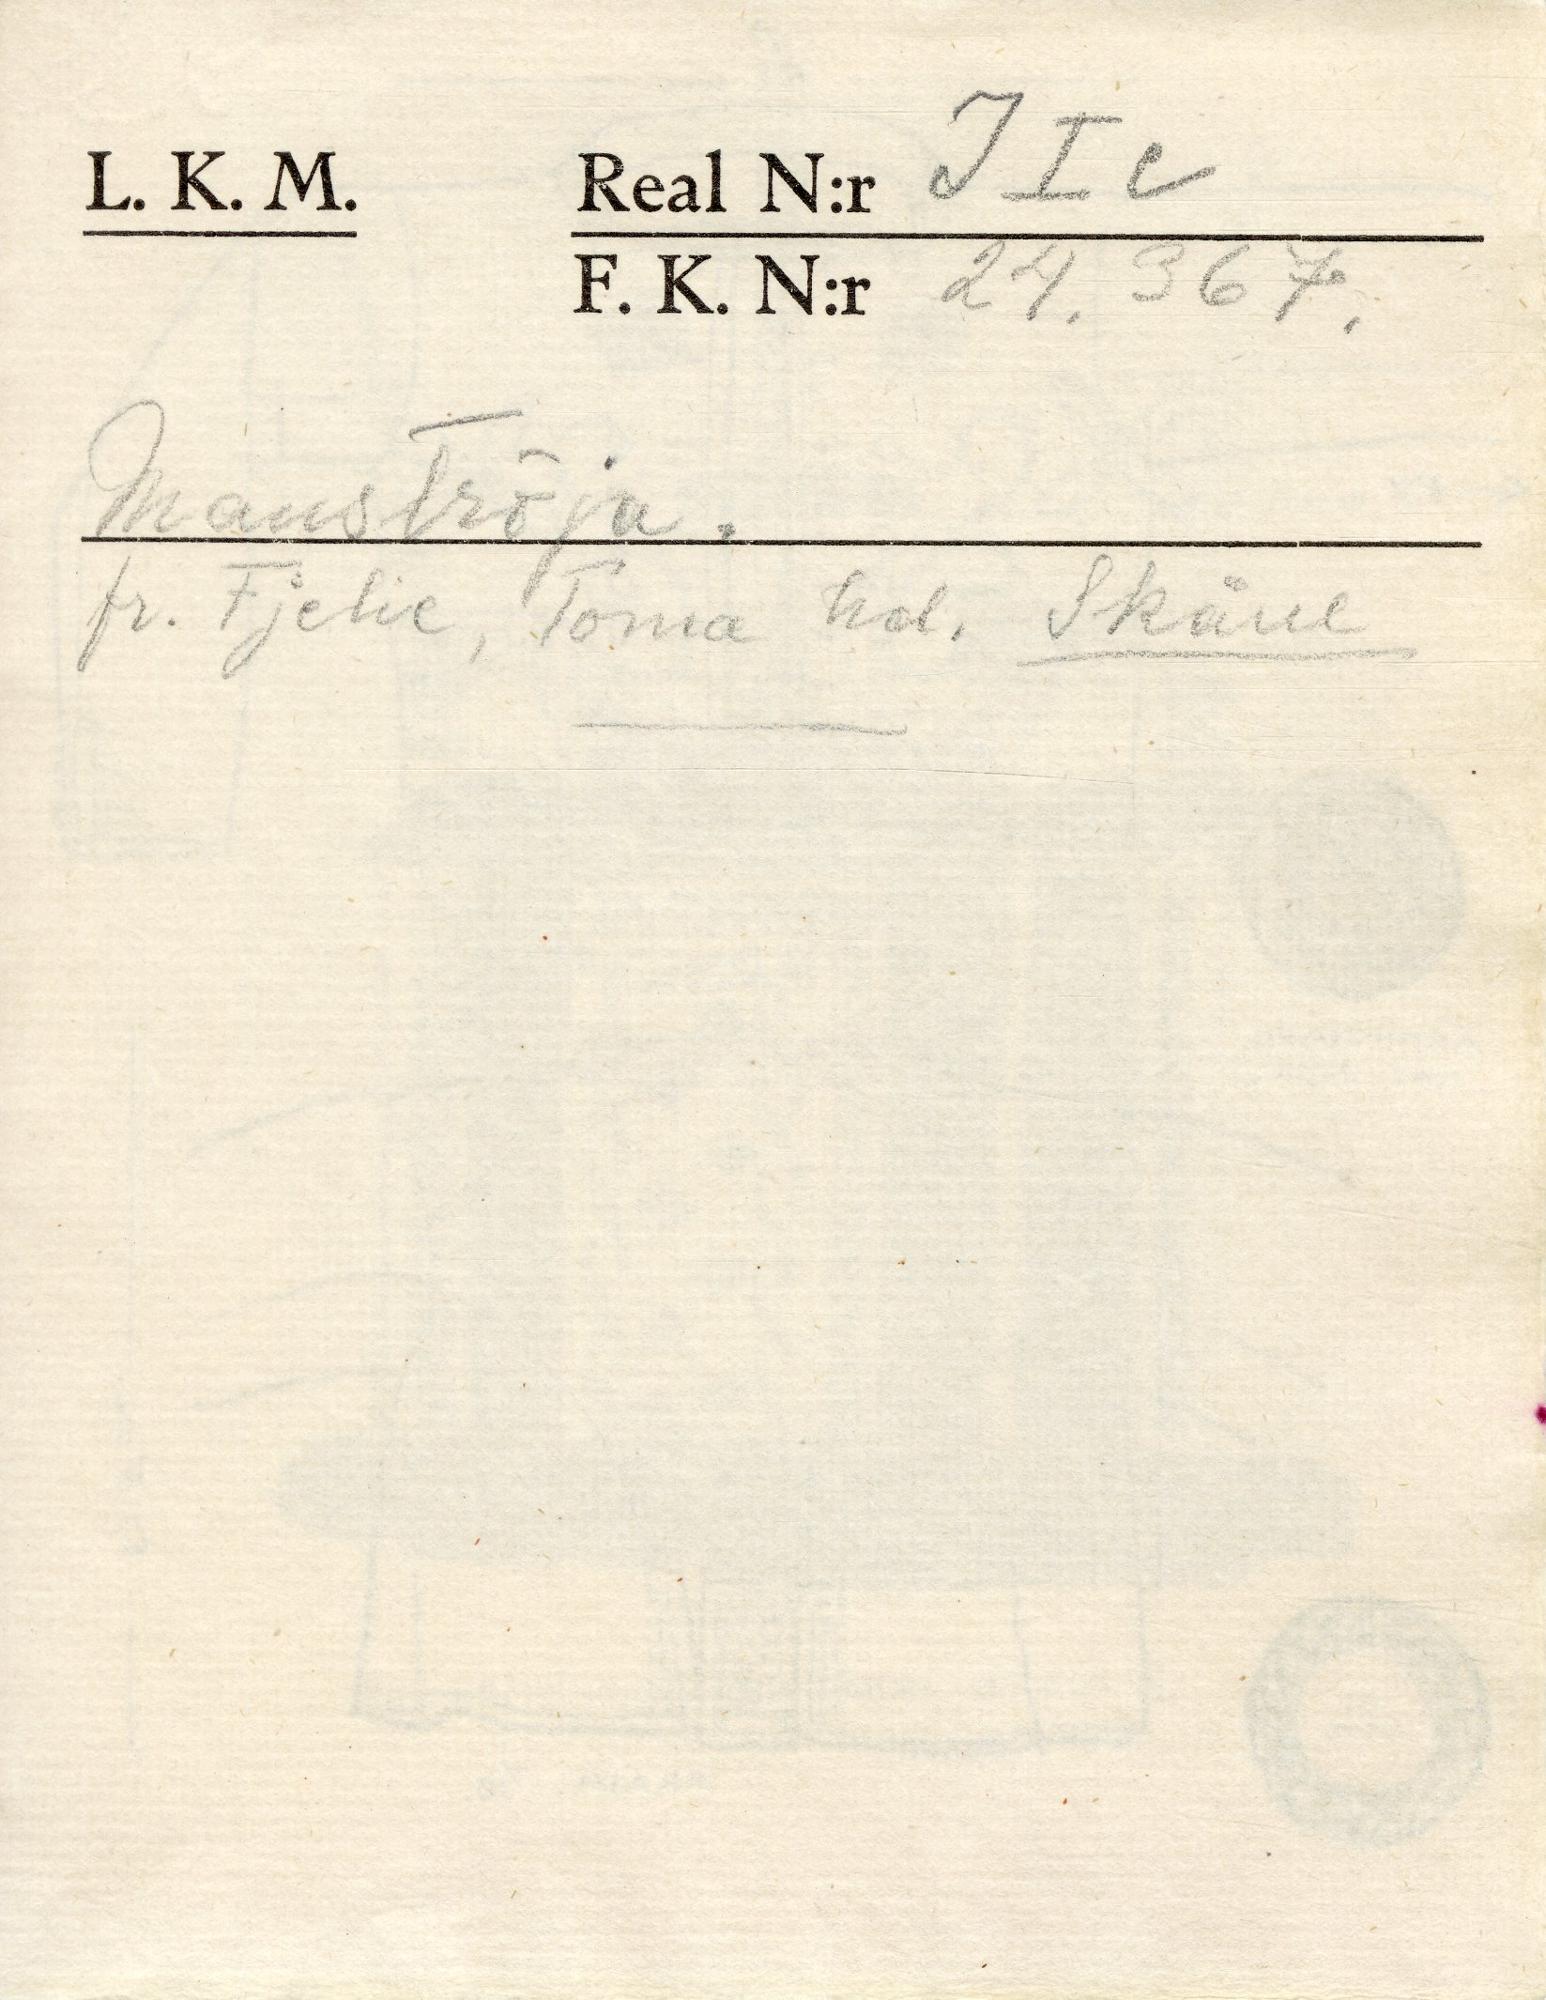 L. K. M.
Real N:r J I c
F. K. N:r 24. 367.
Manströja.
fr. Fjelie, Torna hd. Skåne